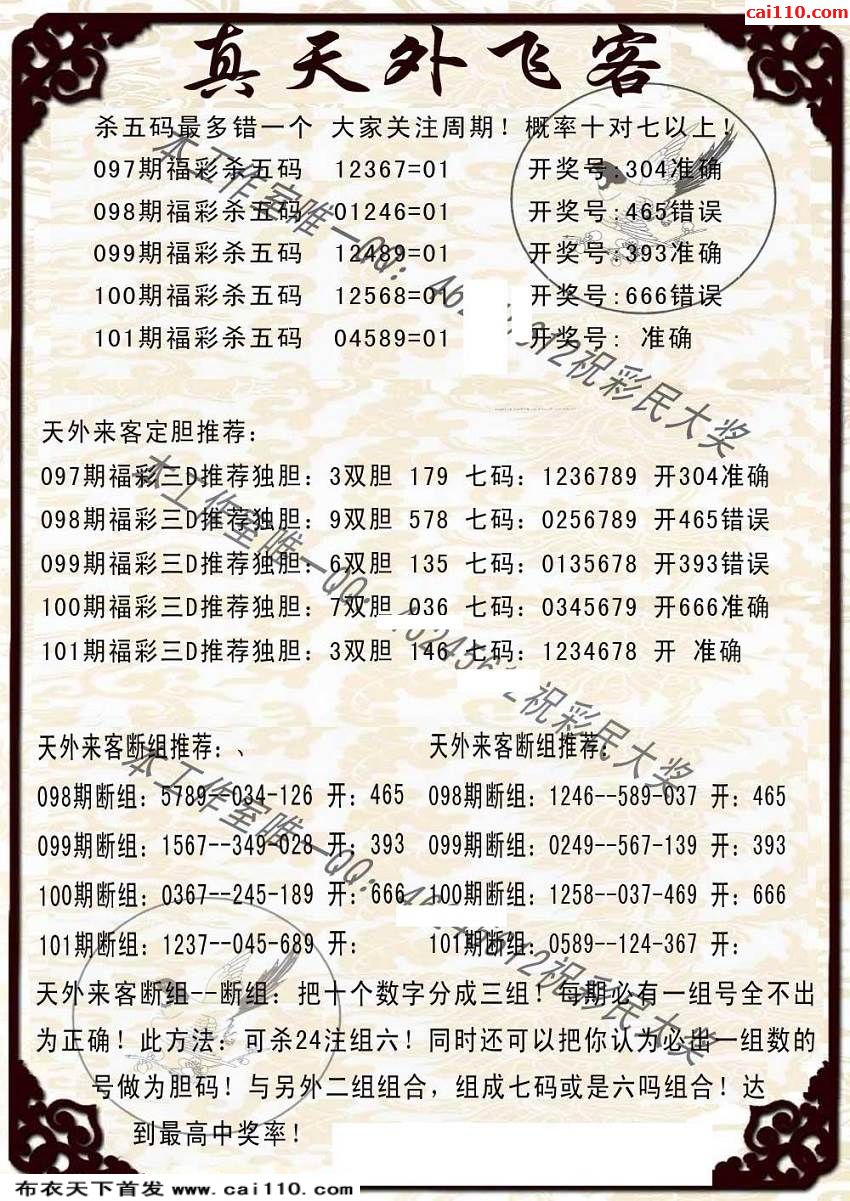 cai110.com
真天外飞客
杀五码最多错一个 大家关注周期！概率十对七以上！
097期福彩杀五码 12367=01 开奖号:304准确
098期福彩杀五码 01246=01 开奖号:465错误
099期福彩杀五码 12489=01 开奖号:393准确
100期福彩杀五码 12568=01 开奖号:666错误
101期福彩杀五码 04589=01 开奖号: 准确
天外来客定胆推荐：
097期福彩三D推荐独胆：3双胆 179 七码：1236789 开304准确
098期福彩三D推荐独胆：9双胆 578 七码：0256789 开465错误
099期福彩三D推荐独胆：6双胆 135 七码：0135678 开393错误
100期福彩三D推荐独胆：7双胆 036 七码：0345679 开666准确
101期福彩三D推荐独胆：3双胆 146 七码：1234678 开 准确
天外来客断组推荐：、 天外来客断组推荐：
098期断组：5789--034-126 开：465 098期断组：1246--589-037 开：465
099期断组：1567--349-028 开：393 099期断组：0249--567-139 开：393
100期断组：0367--245-189 开：666 100期断组：1258--037-469 开：666
101期断组：1237--045-689 开： 101期断组：0589--124-367 开：
天外来客断组--断组：把十个数字分成三组！每期必有一组号全不出
为正确！此方法：可杀24注组六！同时还可以把你认为必出一组数的
号做为胆码！与另外二组组合，组成七码或是六吗组合！达
到最高中奖率！
本工作室唯一QQ：
祝彩民大奖
本工作室唯一QQ：
祝彩民大奖
本工作室唯一QQ：
祝彩民大奖
布衣天下首发 www.cai110.com